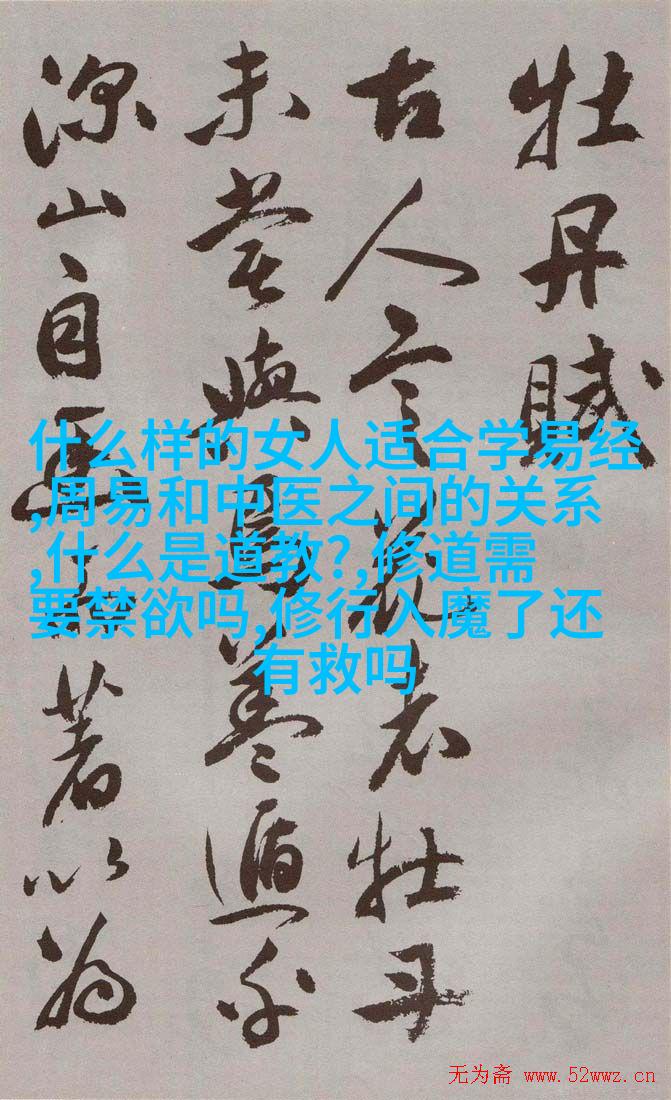 牡丹賦
古人言花者牡丹
未嘗與焉蓋遁
深山自幽而著以為
什么样的女人适合学易经
,周易和中医之间的关系
,什么是道教?,修道需
要禁欲吗,修行入魔了还
有救吗
无为斋 www.52wwz.cn